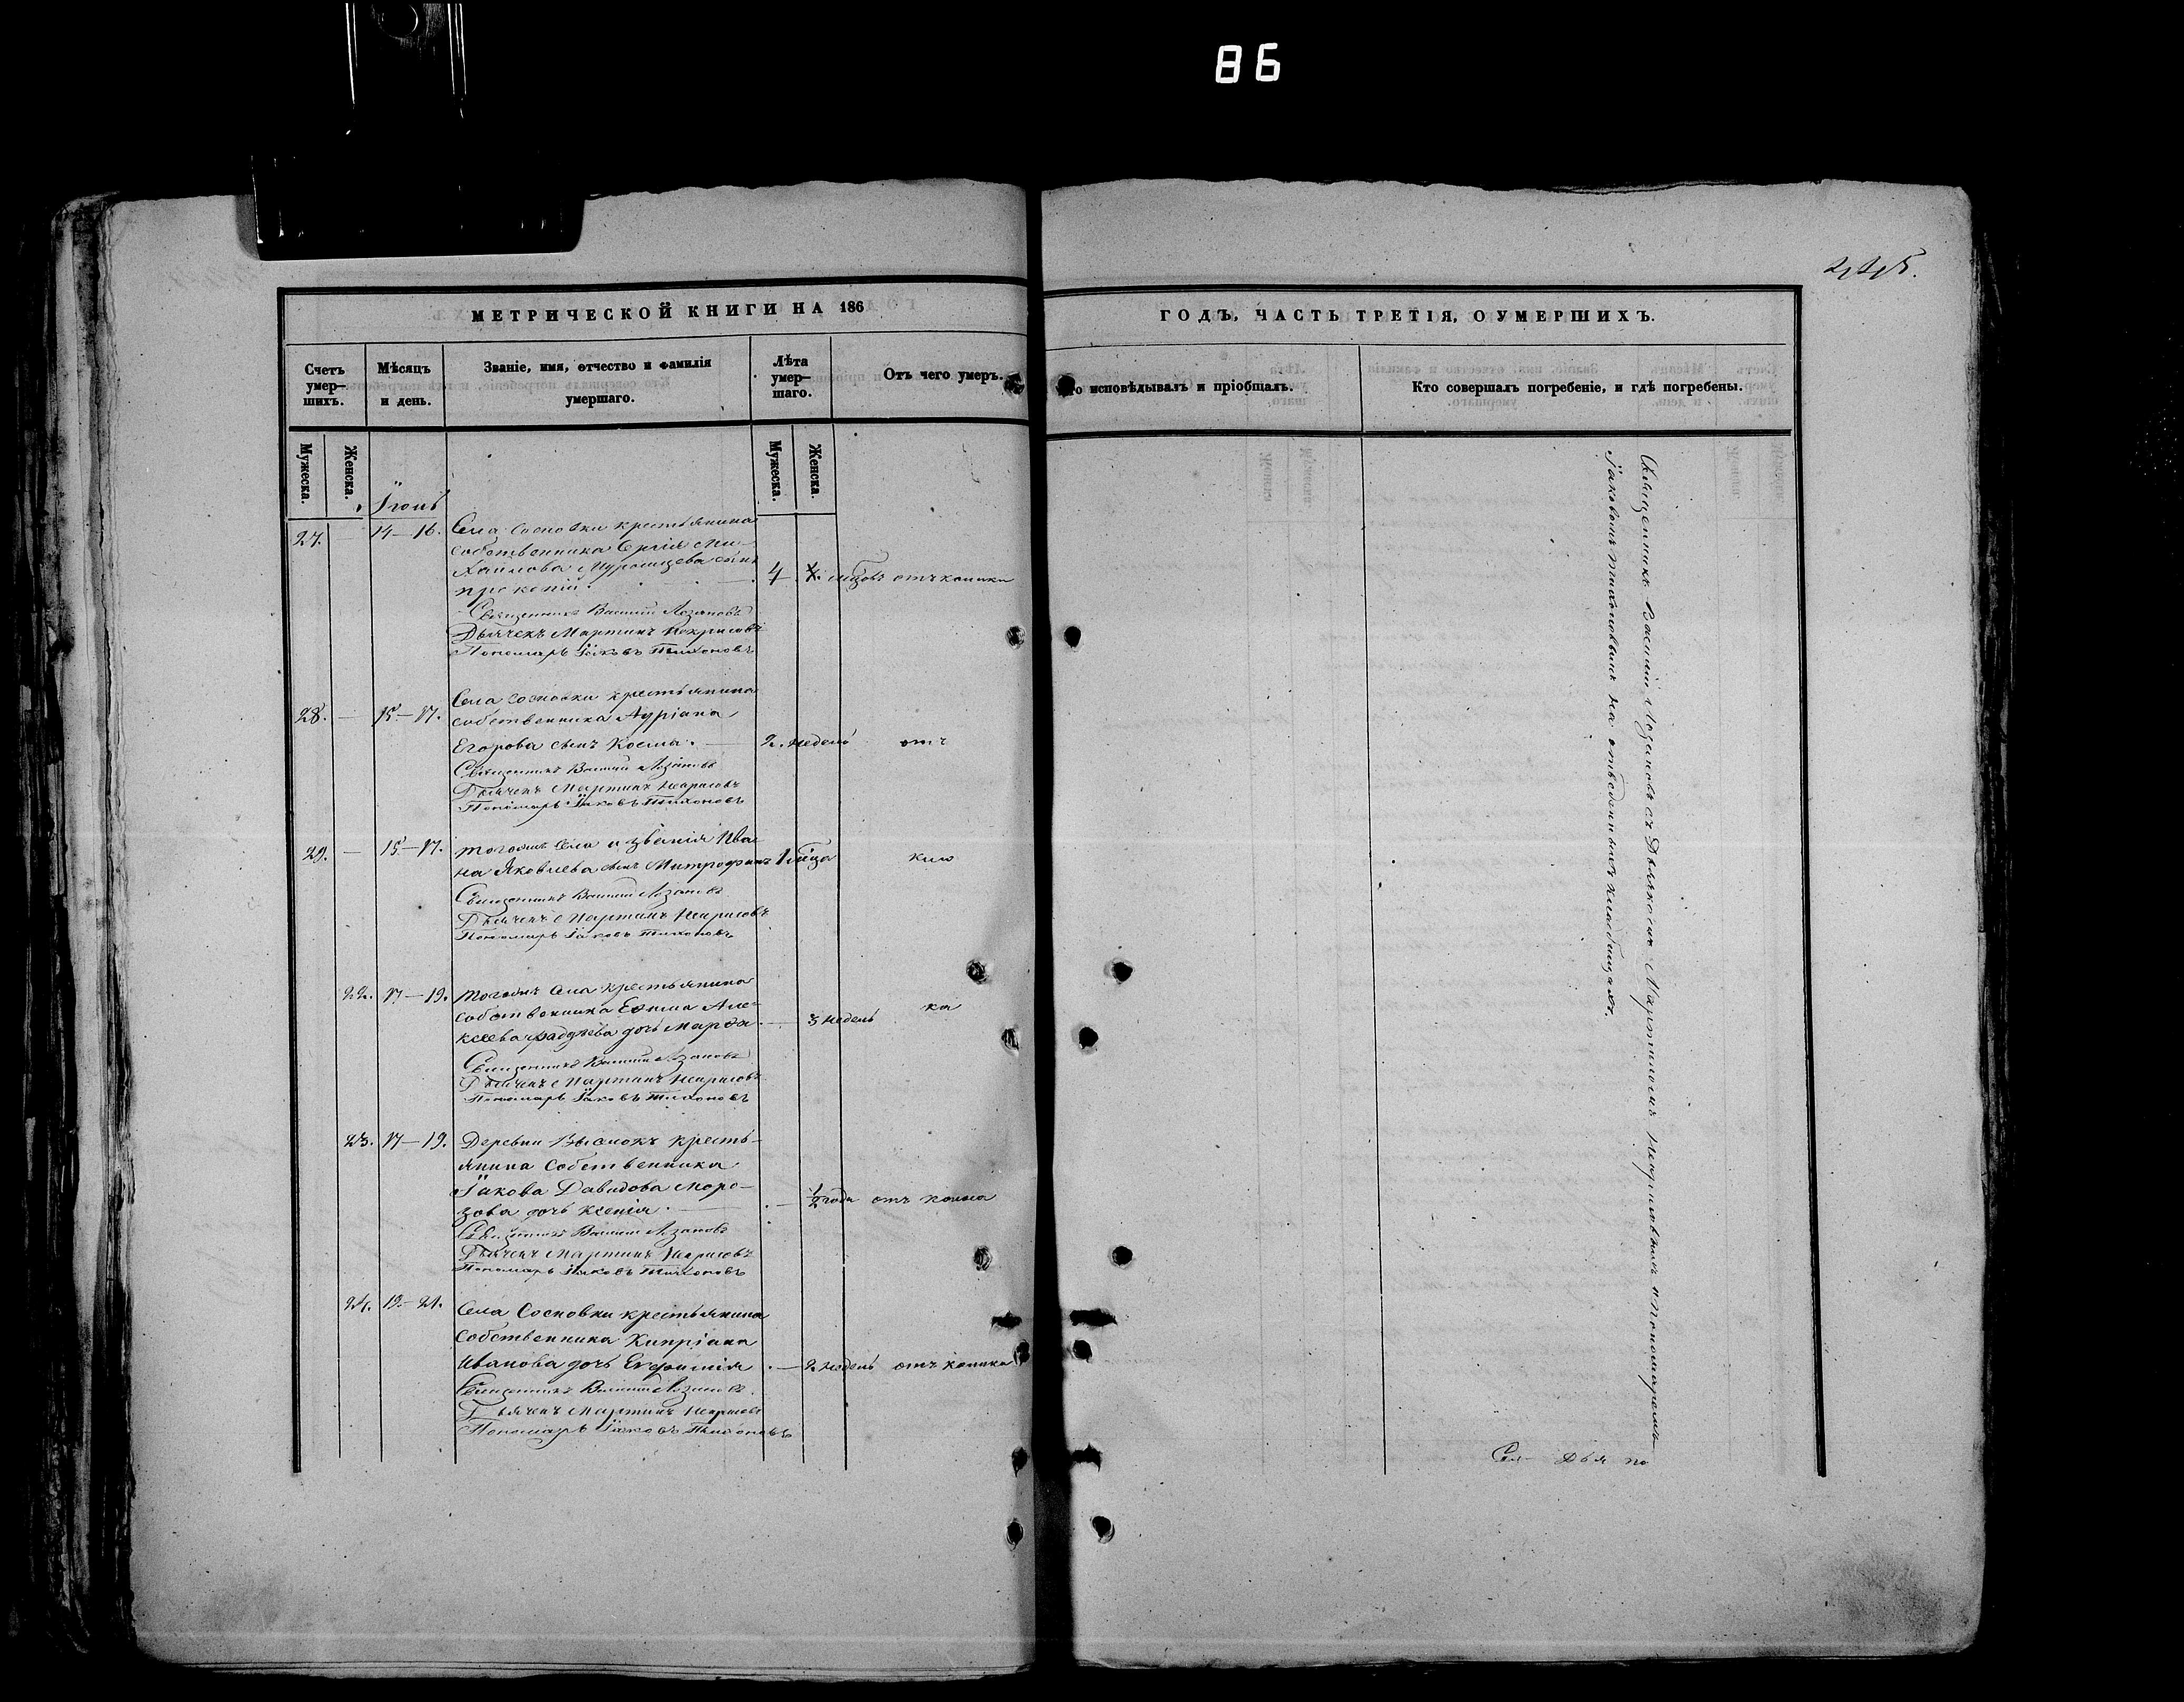 86
225.
МЕТРИЧЕСКОЙ КНИГИ НА 186
ГОДЪ, ЧАСТЬ ТРЕТІЯ, О УМЕРШИХЪ.
Счетъ умер-шихъ.
Мѣсяцъ и день.
Званіе, имя, отчество и фамилія умершаго.
Лѣта умер-шаго.
Отъ чего умеръ.
исповѣдывалъ и пріобщалъ.
Кто совершалъ погребеніе, и гдѣ погребены.
Мужеска.
Женска.
Мужеска.
Женска.
Іюнь
27. — 14–16. Села Сосновки крестьянина
собственника Сергія Ми-
хаилова сынъ
4 отъ колики
Священникъ Василій Лозановъ
Дьячекъ Мартинъ Некрасовъ
Пономарь Іаковъ Тихоновъ
28. — 15–17. Села Сосновки крестьянина
собственника Адріана
Егорова сынъ Косма. — 2. недель отъ
Священникъ Василій Лозановъ
Дьячекъ Мартинъ Некрасовъ
Пономарь Іаковъ Тихоновъ
29. — 15–17. Тогоже села и званія Ива
на Яковлева сынъ Митрофанъ 1 ко
Священникъ Василій Лозановъ
Дьячекъ Мартинъ Некрасовъ
Пономарь Іаковъ Тихоновъ
22. 17–19. Тогоже села крестьянина
собственника Ефима Але-
ксеева дочь Марфа — 3 недель ка
Священникъ Василій Лозановъ
Дьячекъ Мартинъ Некрасовъ
Пономарь Іаковъ Тихоновъ
23. 17–19. Деревни крестъ-
янина собственника
Іакова Давидова Моро-
зова дочь Ксенія. — 1/2 года отъ
Священникъ Василій Лозановъ
Дьячекъ Мартинъ Некрасовъ
Пономарь Іаковъ Тихоновъ
24. 19–21. Села Сосновки крестьянина
собственника Кипріана
Иванова дочь Евфимія — 2 недель отъ колики
Священникъ Василій Лозановъ
Дьячекъ Мартинъ Некрасовъ
Пономарь Іаковъ Тихоновъ
Священникъ Василій Лозановъ съ Дьячкомъ Мартиномъ Некрасовымъ и Пономаремъ
Іаковомъ Тихоновымъ на отведенныхъ кладбищахъ.
Дья по